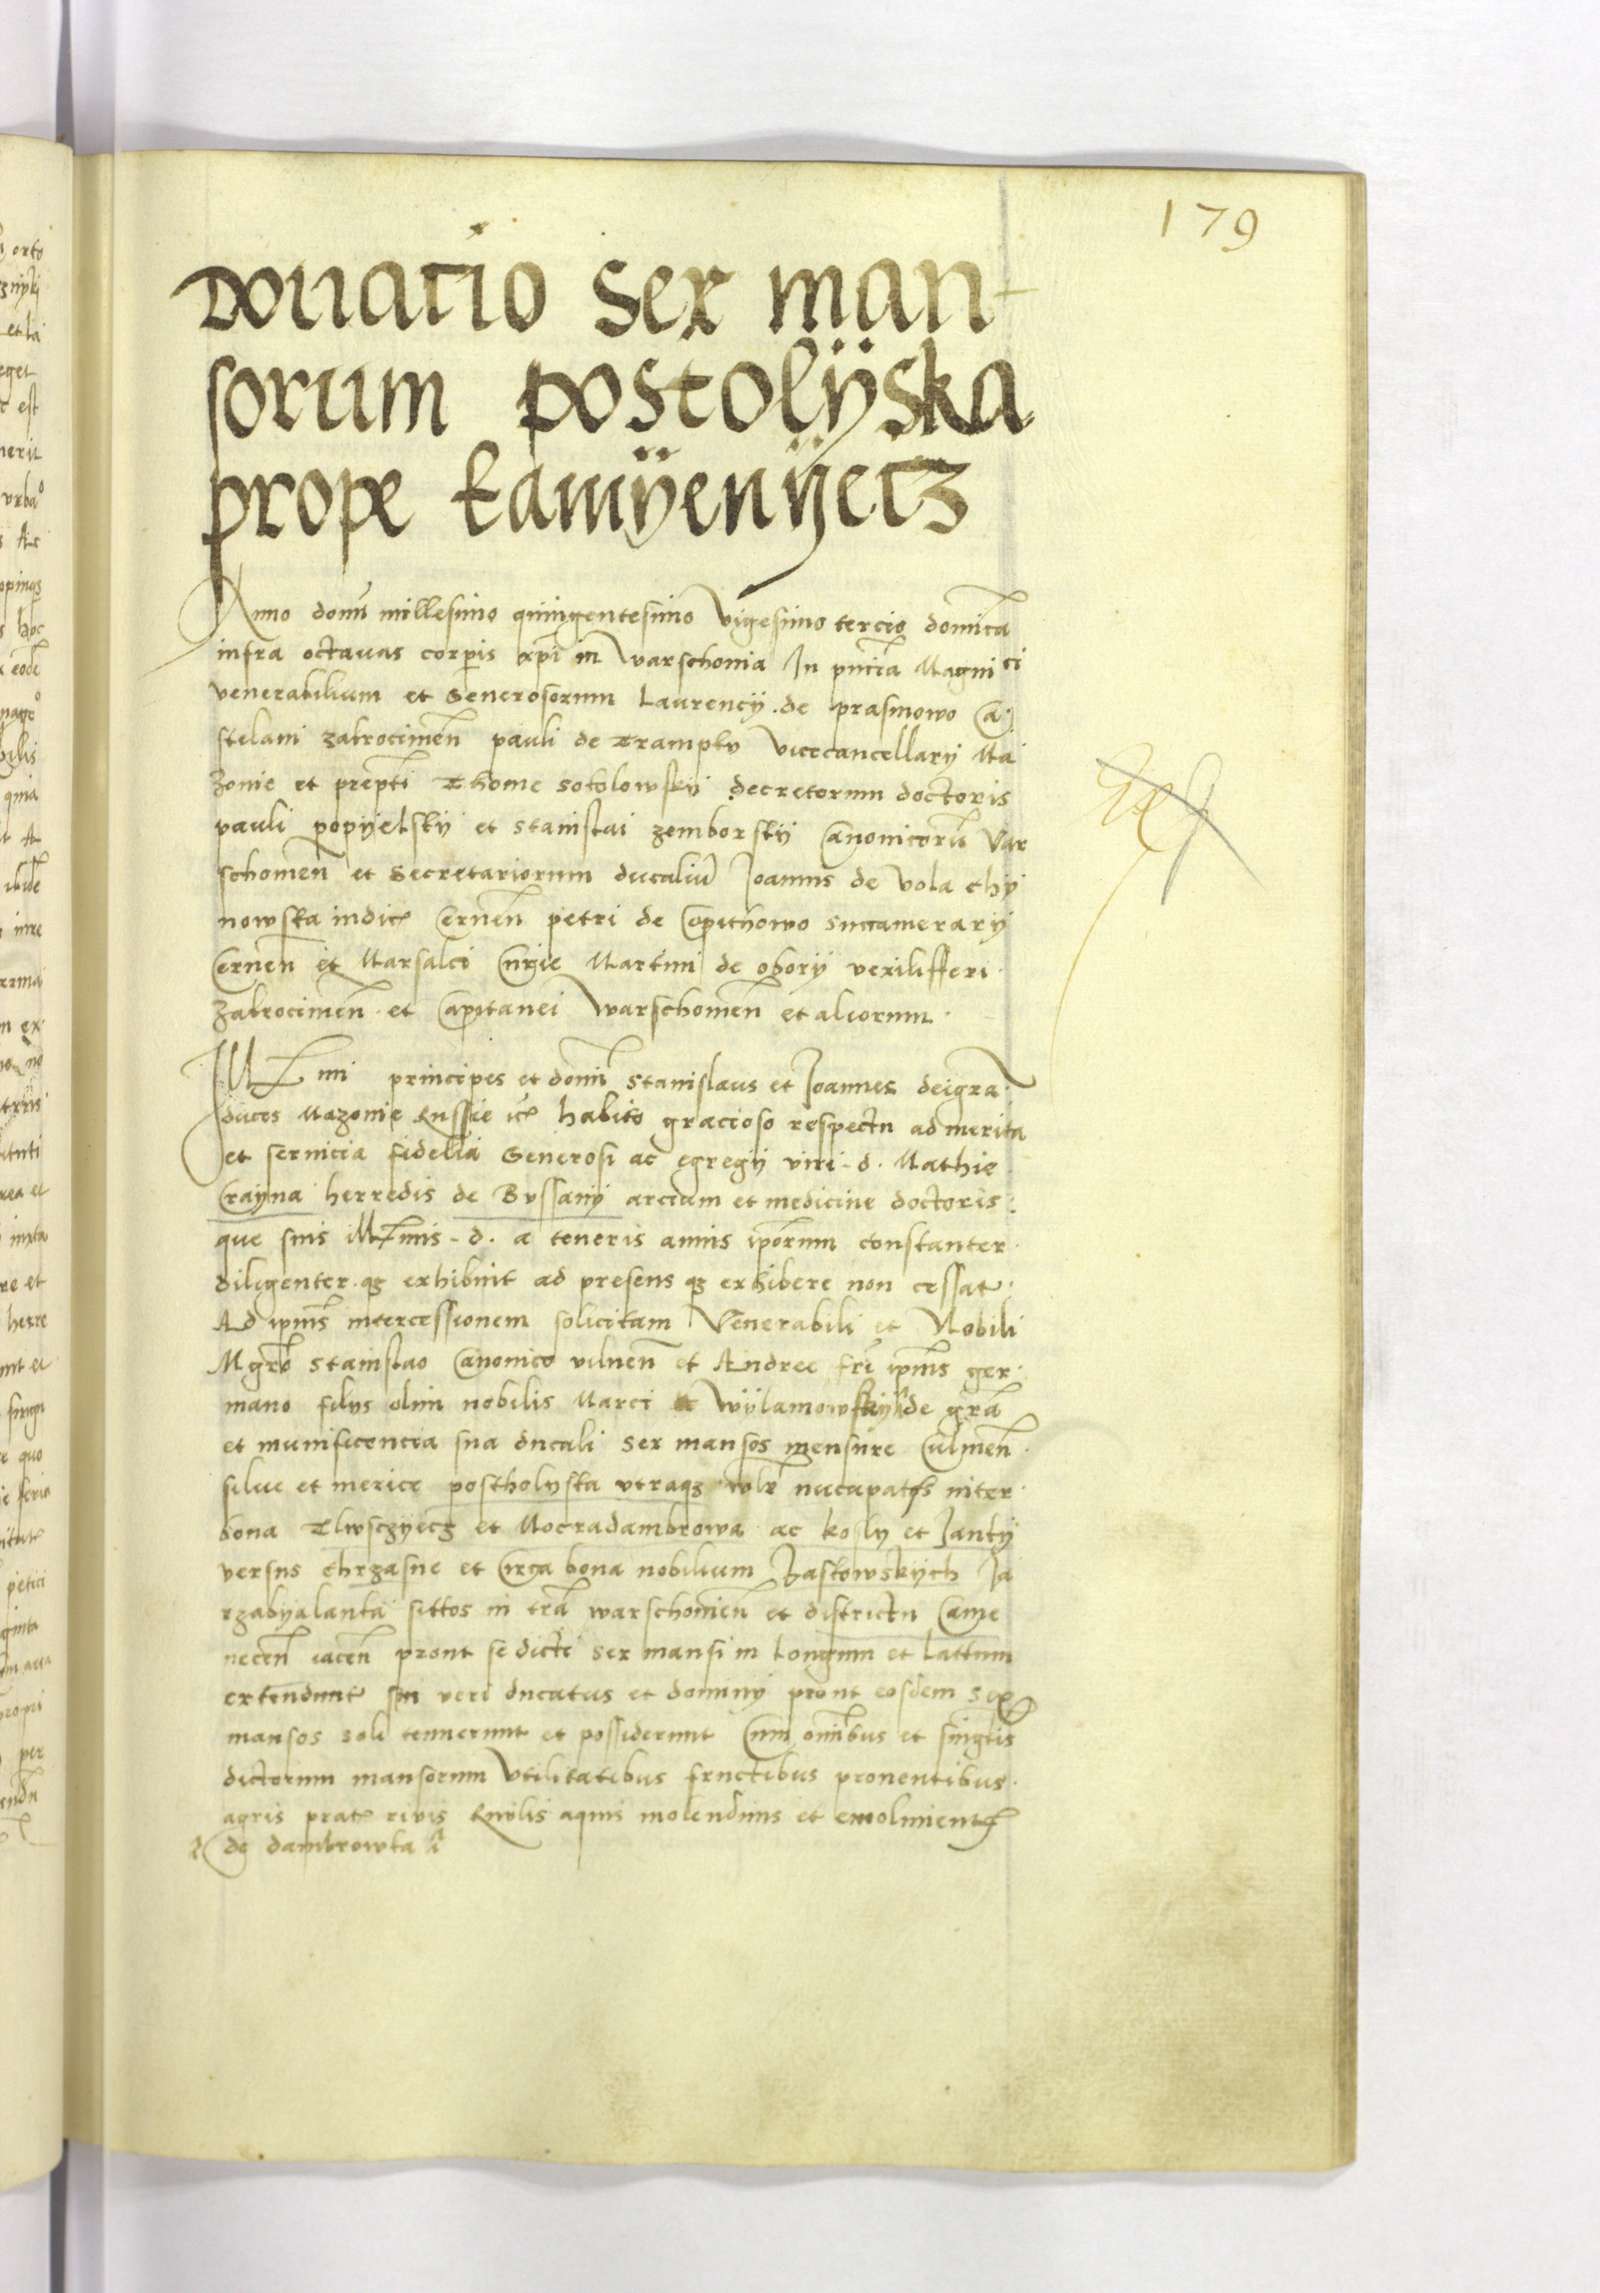 179
Donatio sex man-
sorum postolÿska
prope kamÿenÿecz
Anno domi millesimo quingentesimo vigesimo tercio dominica
infra octauas corpis xpi in Warschouia In pntia Magnici
venerabilium et Generosorum Laurency de prasmowo Ca
stelani zakrocimen pauli de Trampky vicecancellary Ma
zouie et prepti Thome sokolowskij decretorum doctoris
pauli popijelskij et stanislai zemborskij Canonicoru var
schouien et Secretariorum ducaliu Joannis de vola chy
nowska iudic Cernen petri de Copithowo succamerarij
Cernen et Marsalci Curie Martini de oborij vexilifferi
zakrocimen et Capitanei Warschouien et aliorum
Illmi principes et domi Stanislaus et Joannes dei gra
duces Mazouie Russie etc habito gracioso respectu ad merita
et seruicia fidelia Generosi ac egregij viri d. Mathie
Crayna herredis de Bussanij arcium et medicine doctoris
que suis illmis d. a teneris annis ipsorum constanter
diligenter qz exhibuit ad presens qz exhibere non cessat
Ad ipius intercessionem solicitam Venerabili et Nobili
Mgro stanislao Canonico vilnen et Andree fri ipius ger
mano filys olim nobilis Marci Wijlamowskij de gra
et munificencia sua ducali sex mansos mensure Culmen
silue et merice postholyska vtraqz wlr nucupatos inter
bona Tlwsczyecz et Mocradambrowa ac kosly et Janky
versus chrzasne et circa bona nobilium Jaskowskych Ja
rzabyalanka sittos in tra warschouien et districtu Came
necen iacen prout se dicti sex mansi in longum et lattum
extendunt sui veri ducatus et dominij prout eosdem sex
mansos soli tenuerunt et possiderunt Cum omibus et singlis
dictorum mansorum vtilitatibus fructibus prouentibus
agris prat riuis Rwlis aquis molendinis et emolument
de dambrowka